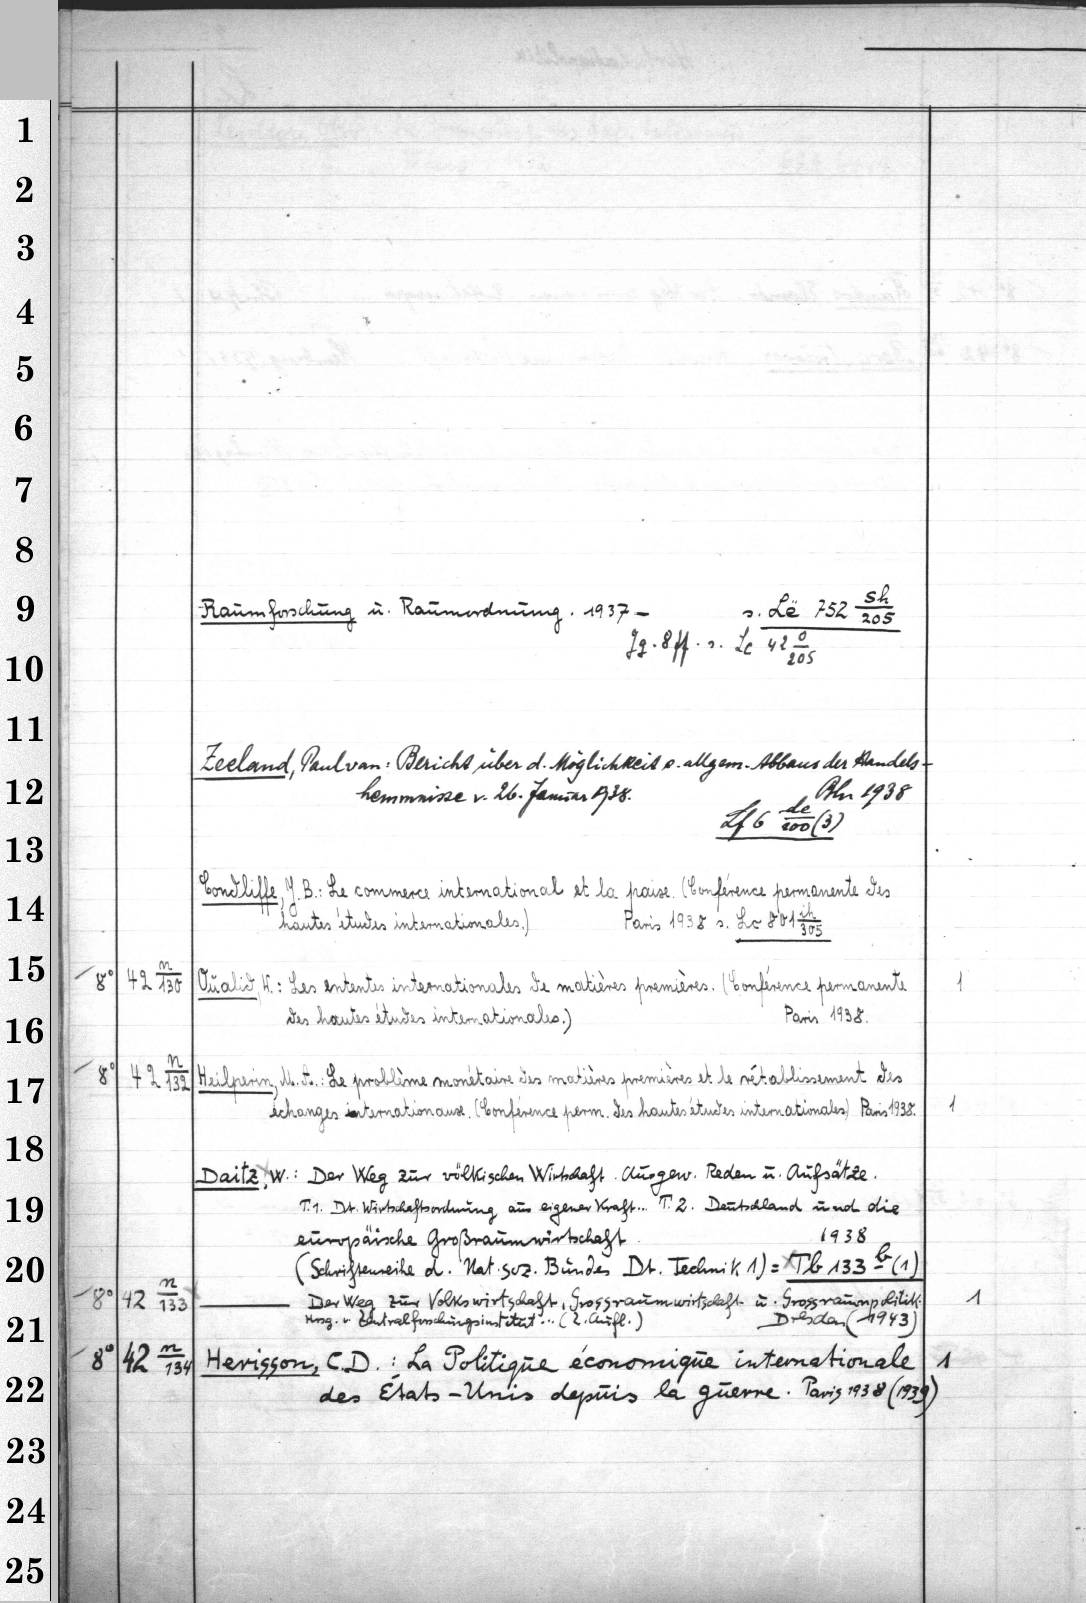 1
2
3
4
5
6
7
8
9 Raumforschung u. Raumordnung. 1937– s. Lë 752 sh/205
Jg. 8 ff. s. Lc 42 o/205
10
11
Zeeland, Paul van: Bericht über d. Möglichkeit e. allgem. Abbaus der Handels-
12 hemmnisse v. 26. Januar 1938. Bln 1938
Lf 6 de/100 (3)
13
Condliffe, J. B.: Le commerce international et la paix. (Conférence permanente des
14 hautes études internationales.) Paris 1938 s. Lc 801 ih/305
15 8° 42 n/130 Oualid, W.: Les ententes internationales de matières premières. (Conférence permanente 1
16 des hautes études internationales.) Paris 1938.
17 8° 42 n/132 Heilperin, M. A.: Le problème monétaire des matières premières et le rétablissement des
échanges internationaux. (Conférence perm. des hautes études internationales) Paris 1938. 1
18
Daitz, W.: Der Weg zur völkischen Wirtschaft. Ausgew. Reden u. Aufsätze.
19 T. 1. Dt. Wirtschaftsordnung aus eigener Kraft... T. 2. Deutschland und die
europäische Großraumwirtschaft 1938
20 (Schriftenreihe d. Nat. soz. Bundes Dt. Technik 1) = Tb 133 b (1)
8° 42 n/133 ——— Der Weg zur Volkswirtschaft, Grossraumwirtschaft u. Grossraumpolitik. 1
21 Hrsg. v. Zentralforschungsinstitut... (2. Aufl.) Dresden (1943)
8° 42 n/134 Herisson, C. D.: La Politique économique internationale 1
22 des États-Unis depuis la guerre. Paris 1938 (1939)
23
24
25